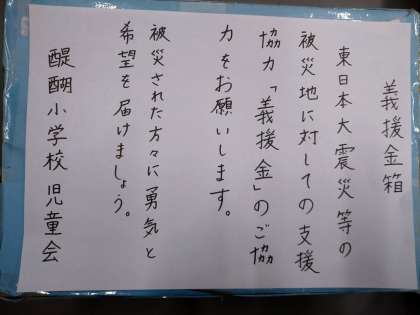 義援金箱
東日本大震災等の
被災地に対しての支援
協力「義援金」のご協
力をお願いします。
被災された方々に勇気と
希望を届けましょう。
醍醐小学校児童会